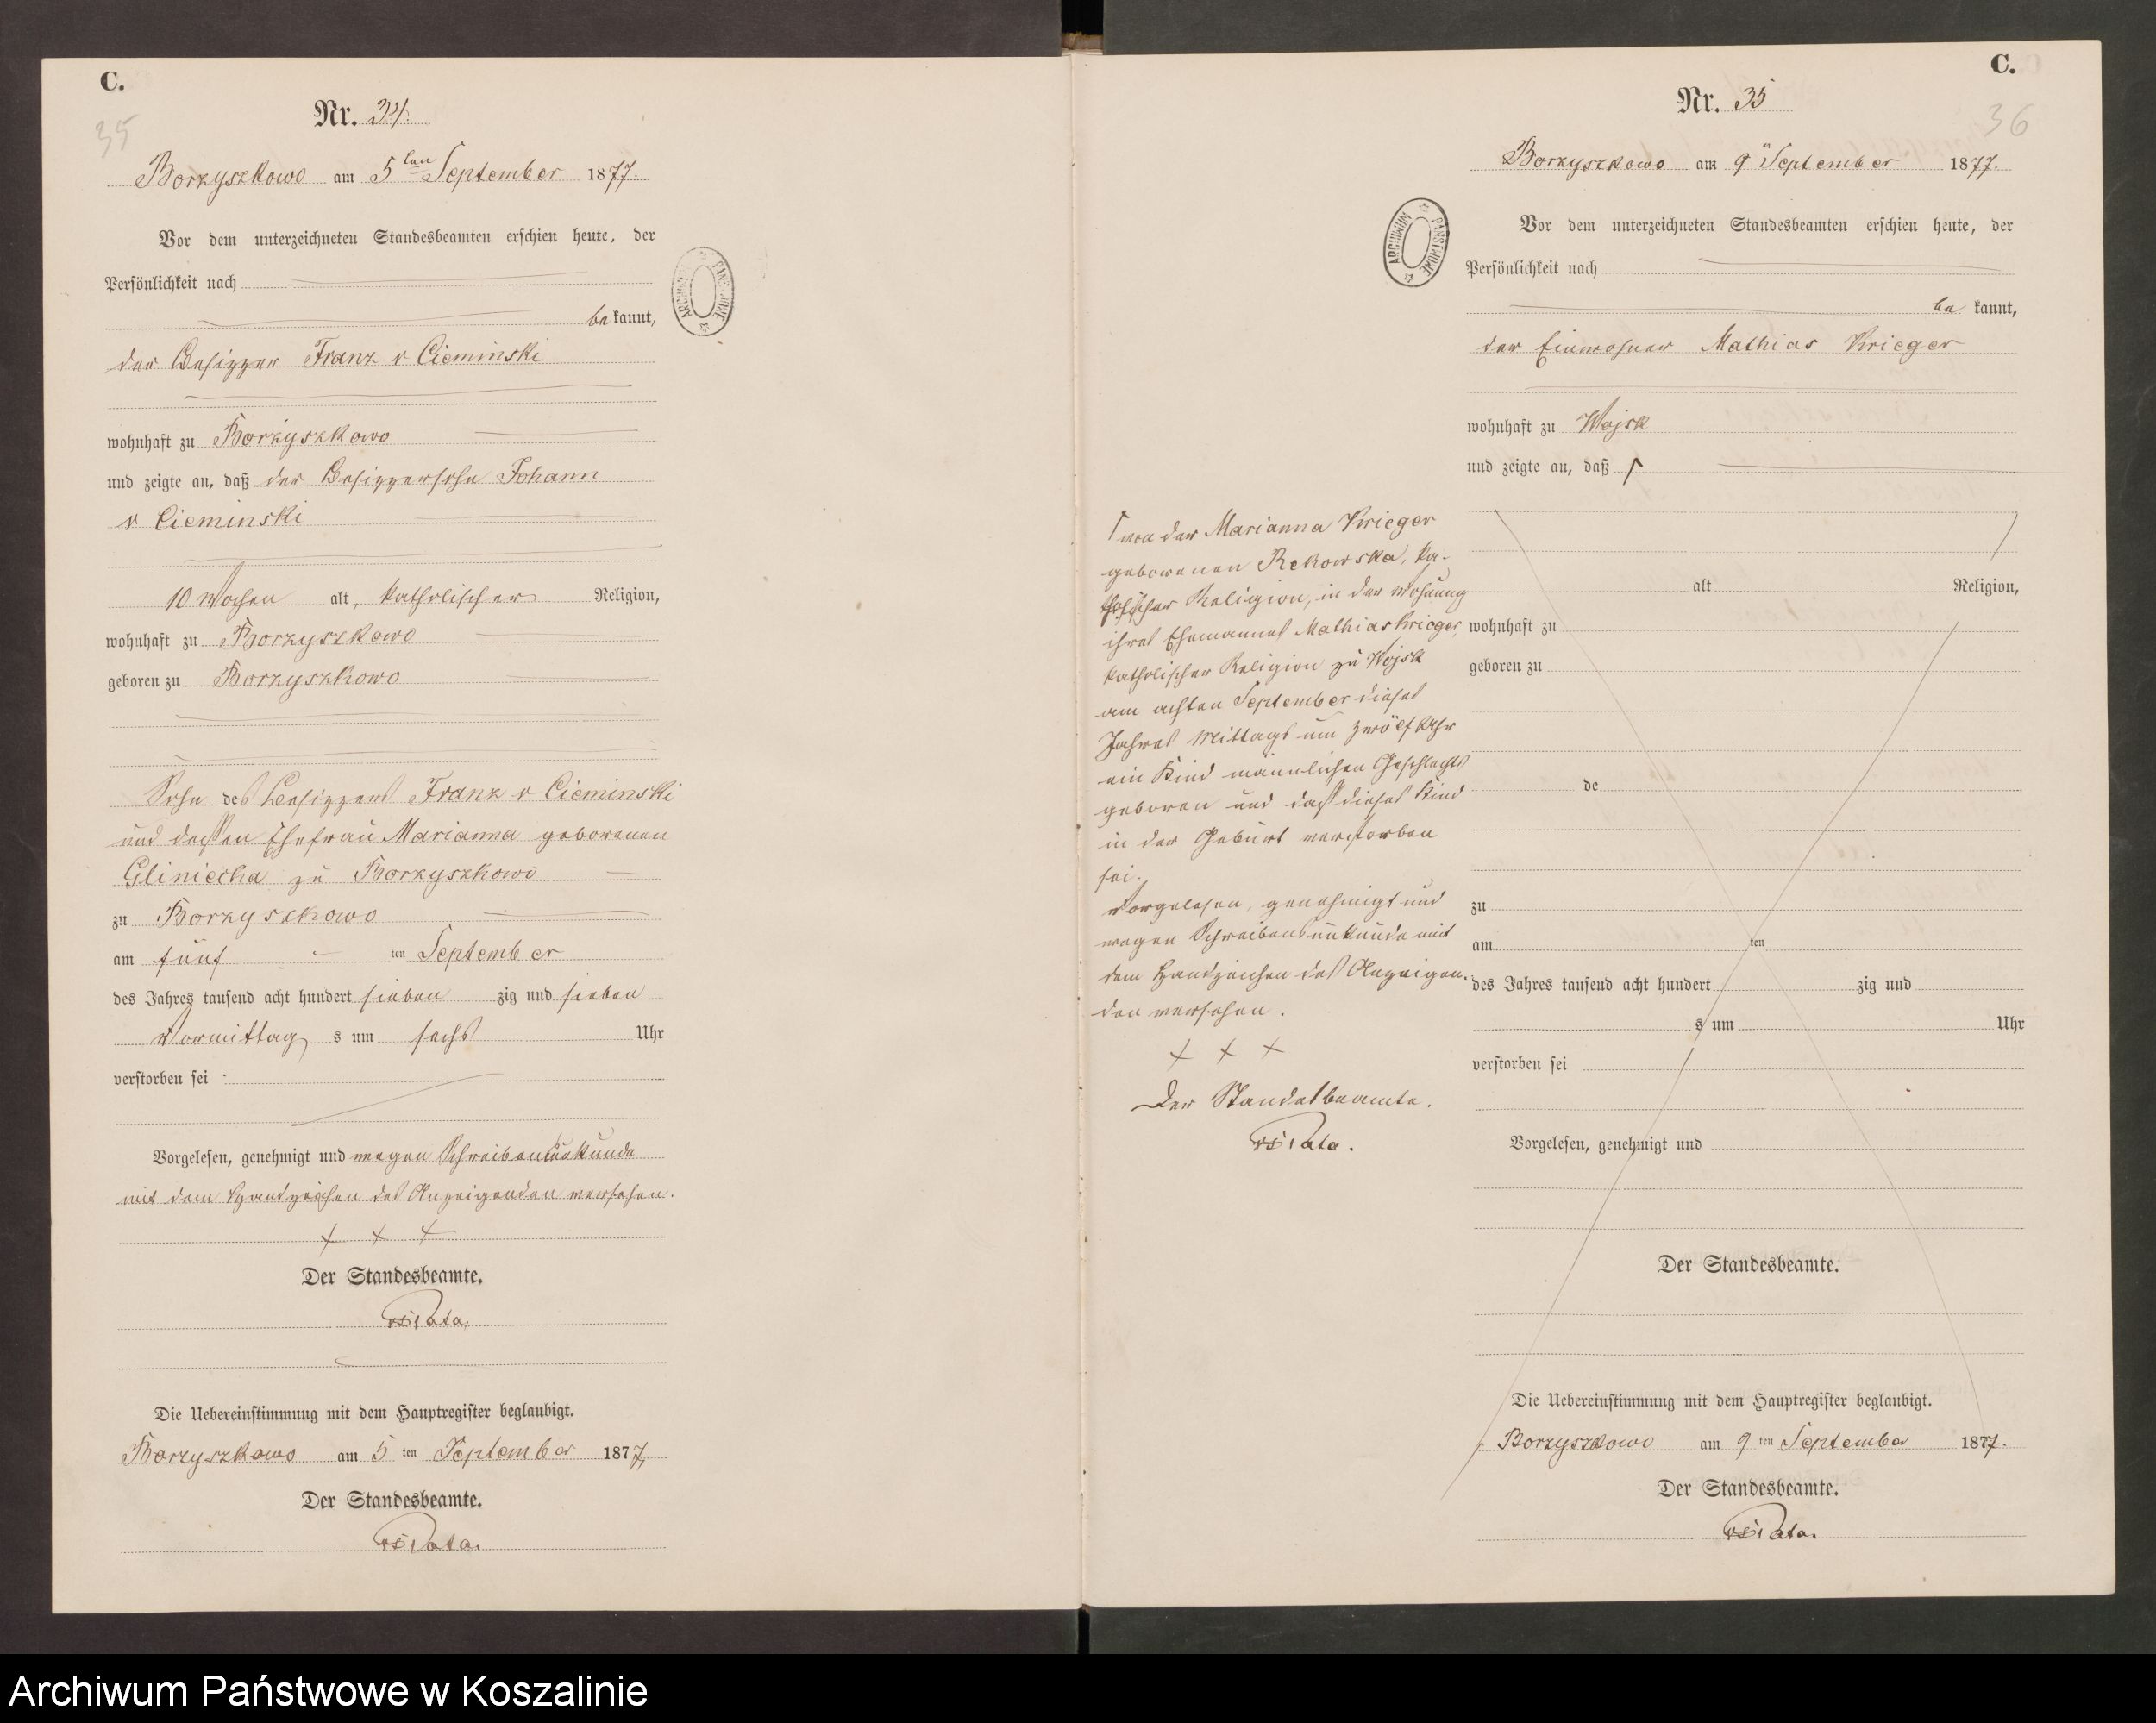 C.
35
Nr. 34.
Borzyszkowo am 5ten September 1877.
Vor dem unterzeichneten Standesbeamten erschien heute, der
Persönlichkeit nach
bekannt,
der Besitzer Franz v Cieminski
wohnhaft zu Borzyszkowo
und zeigte an, daß der Besitzersohn Johann
v Cieminski
10 Wochen alt, katholischer Religion,
wohnhaft zu Borzyszkowo
geboren zu Borzyszkowo
Sohn des Besitzers Franz v Cieminski
und dessen Ehefrau Marianna geborenen
zu Borzyszkowo
zu Borzyszkowo
am fünf ten September
des Jahres tausend acht hundert sieben zig und sieben
Vormittag s um sechs Uhr
verstorben sei
Vorgelesen, genehmigt und wegen Schreibensunkunde
mit dem Handzeichen des Anzeigenden versehen.
+ + +
Der Standesbeamte.
Die Uebereinstimmung mit dem Hauptregister beglaubigt.
Borzyszkowo am 5 ten September 1877,
Der Standesbeamte.
ARCHIWUM PAŃSTWOWE
C.
36
Nr. 35
Borzyszkowo am 9 September 1877.
Vor dem unterzeichneten Standesbeamten erschien heute, der
Persönlichkeit nach
be kannt,
der Einwohner Mathias Krieger
wohnhaft zu Wojsk
und zeigte an, daß
von der Marianna Krieger
geborenen Rekowska, ka-
tholischer Religion, in der Wohnung
ihres Ehemannes Mathias Krieger
katholischer Religion zu Wojsk
am achten September dieses
Jahres Mittags um zwölf Uhr
ein Kind männlichen Geschlechts
geboren und daß dieses Kind
in der Geburt verstorben
sei.
Vorgelesen, genehmigt und
wegen Schreibensunkunde mit
dem Handzeichen des Anzeigen-
den versehen.
+ + +
Der Standesbeamte.
alt Religion,
wohnhaft zu
geboren zu
de
zu
am ten
des Jahres tausend acht hundert zig und
s um Uhr
verstorben sei
Vorgelesen, genehmigt und
Der Standesbeamte.
Die Uebereinstimmung mit dem Hauptregister beglaubigt.
Borzyszkowo am 9 ten September 1877.
Der Standesbeamte.
ARCHIWUM PAŃSTWOWE
Archiwum Państwowe w Koszalinie